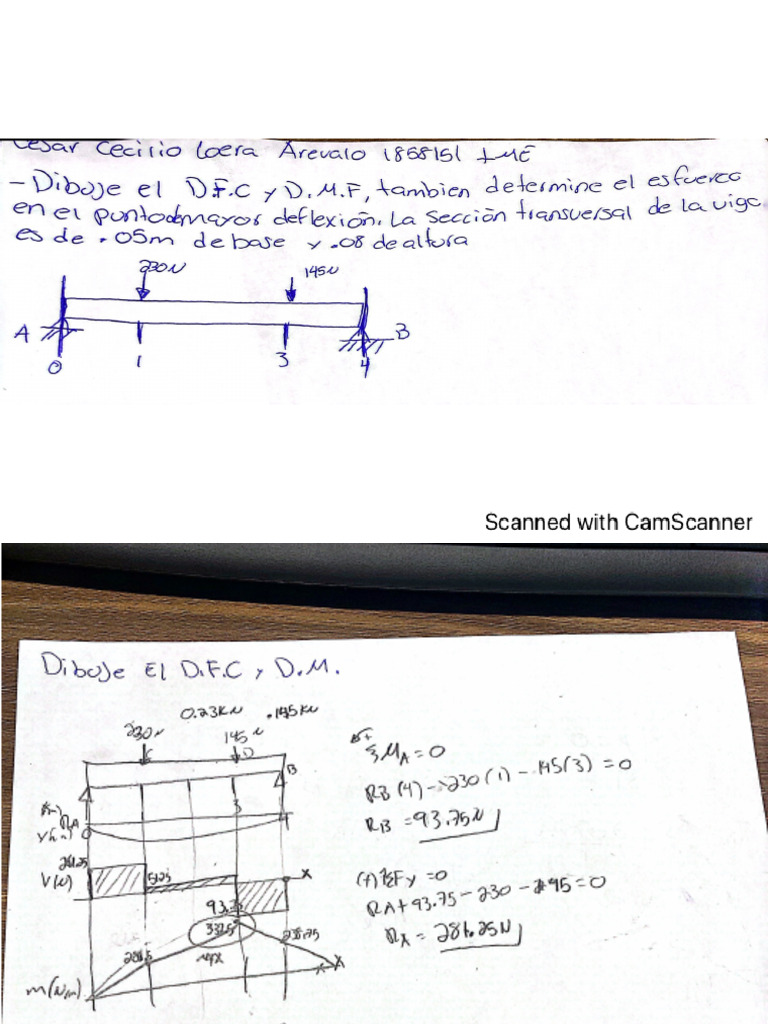 Cesar Cecilio Loera Arevalo 1858151 IME
- Dibuje el D.F.C y D.M.F, tambien determine el esfuerzo
en el punto de mayor deflexión. La sección transversal de la viga
es de .05m de base y .08 de altura
230N 145N
A B
0 1 3 4
Scanned with CamScanner
Dibuje El D.F.C y D.M.
0.23KN .145KN
230N 145N
D
B
ΣMA = 0
RB (4) - 230 (1) - 145(3) = 0
RB = 93.75N
3
RA
V(N)
X
93.75
(+) ΣFy = 0
RA + 93.75 - 230 - 295 = 0
RA = 286.25N
332.5
max
X
M(Nm)